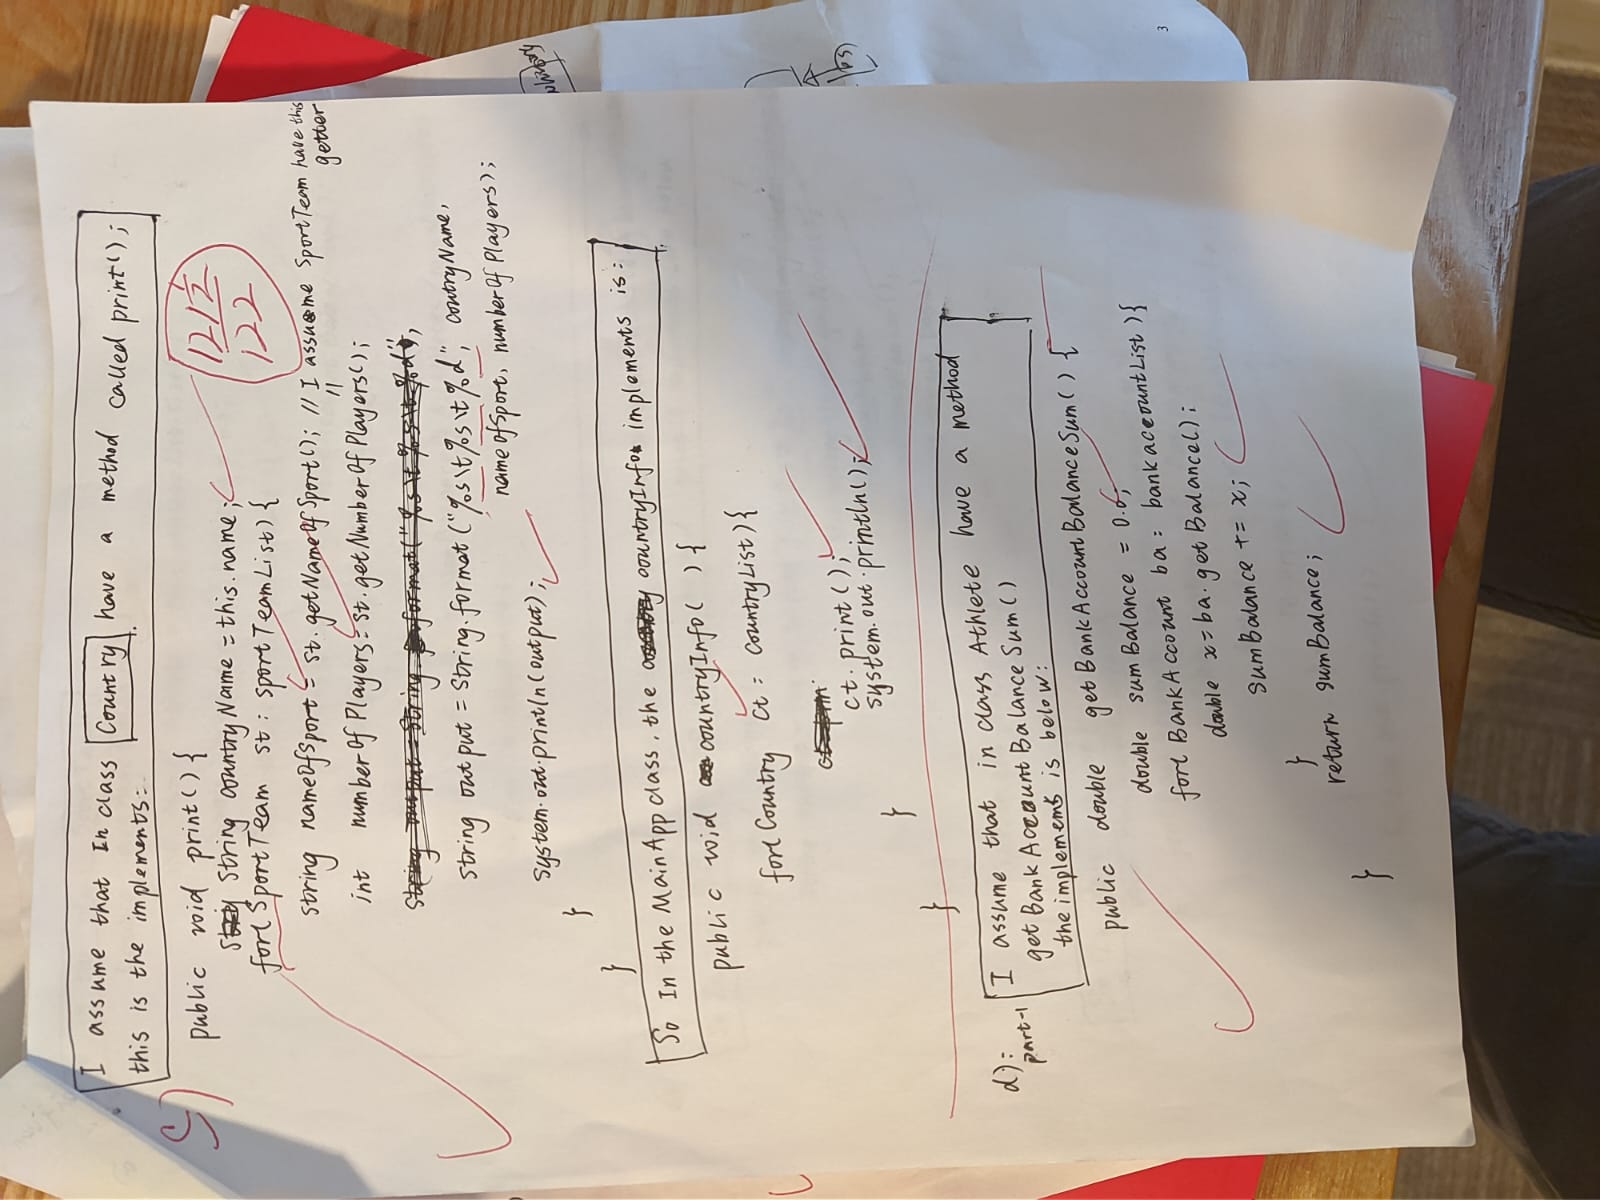 I assume that In class Country have a method called print();
this is the implements:
c)
12 1/2
12 2
public void print() {
String countryName = this.name;
for(SportTeam st : sportTeamList) {
string nameOfSport = st.getNameOfSport(); // I assume SportTeam have this getter
int numberOfPlayers = st.getNumberOfPlayers(); "
String output = String.format("%s\t%s\t%d",
string output = String.format("%s\t%s\t%d", countryName,
nameOfSport, numberOfPlayers);
system.out.println(output);
}
}
So In the MainApp class, the countryInfo implements is:
public void countryInfo( ) {
for(Country ct : countryList) {
ct.print();
system.out.println();
}
}
d): part-1
I assume that in class Athlete have a method
getBankAccountBalanceSum()
the implements is below:
public double getBankAccountBalanceSum() {
double sumBalance = 0.0;
for(BankAccount ba : bankaccountList) {
double x = ba.getBalance();
sumBalance += x;
}
return sumBalance;
}
3